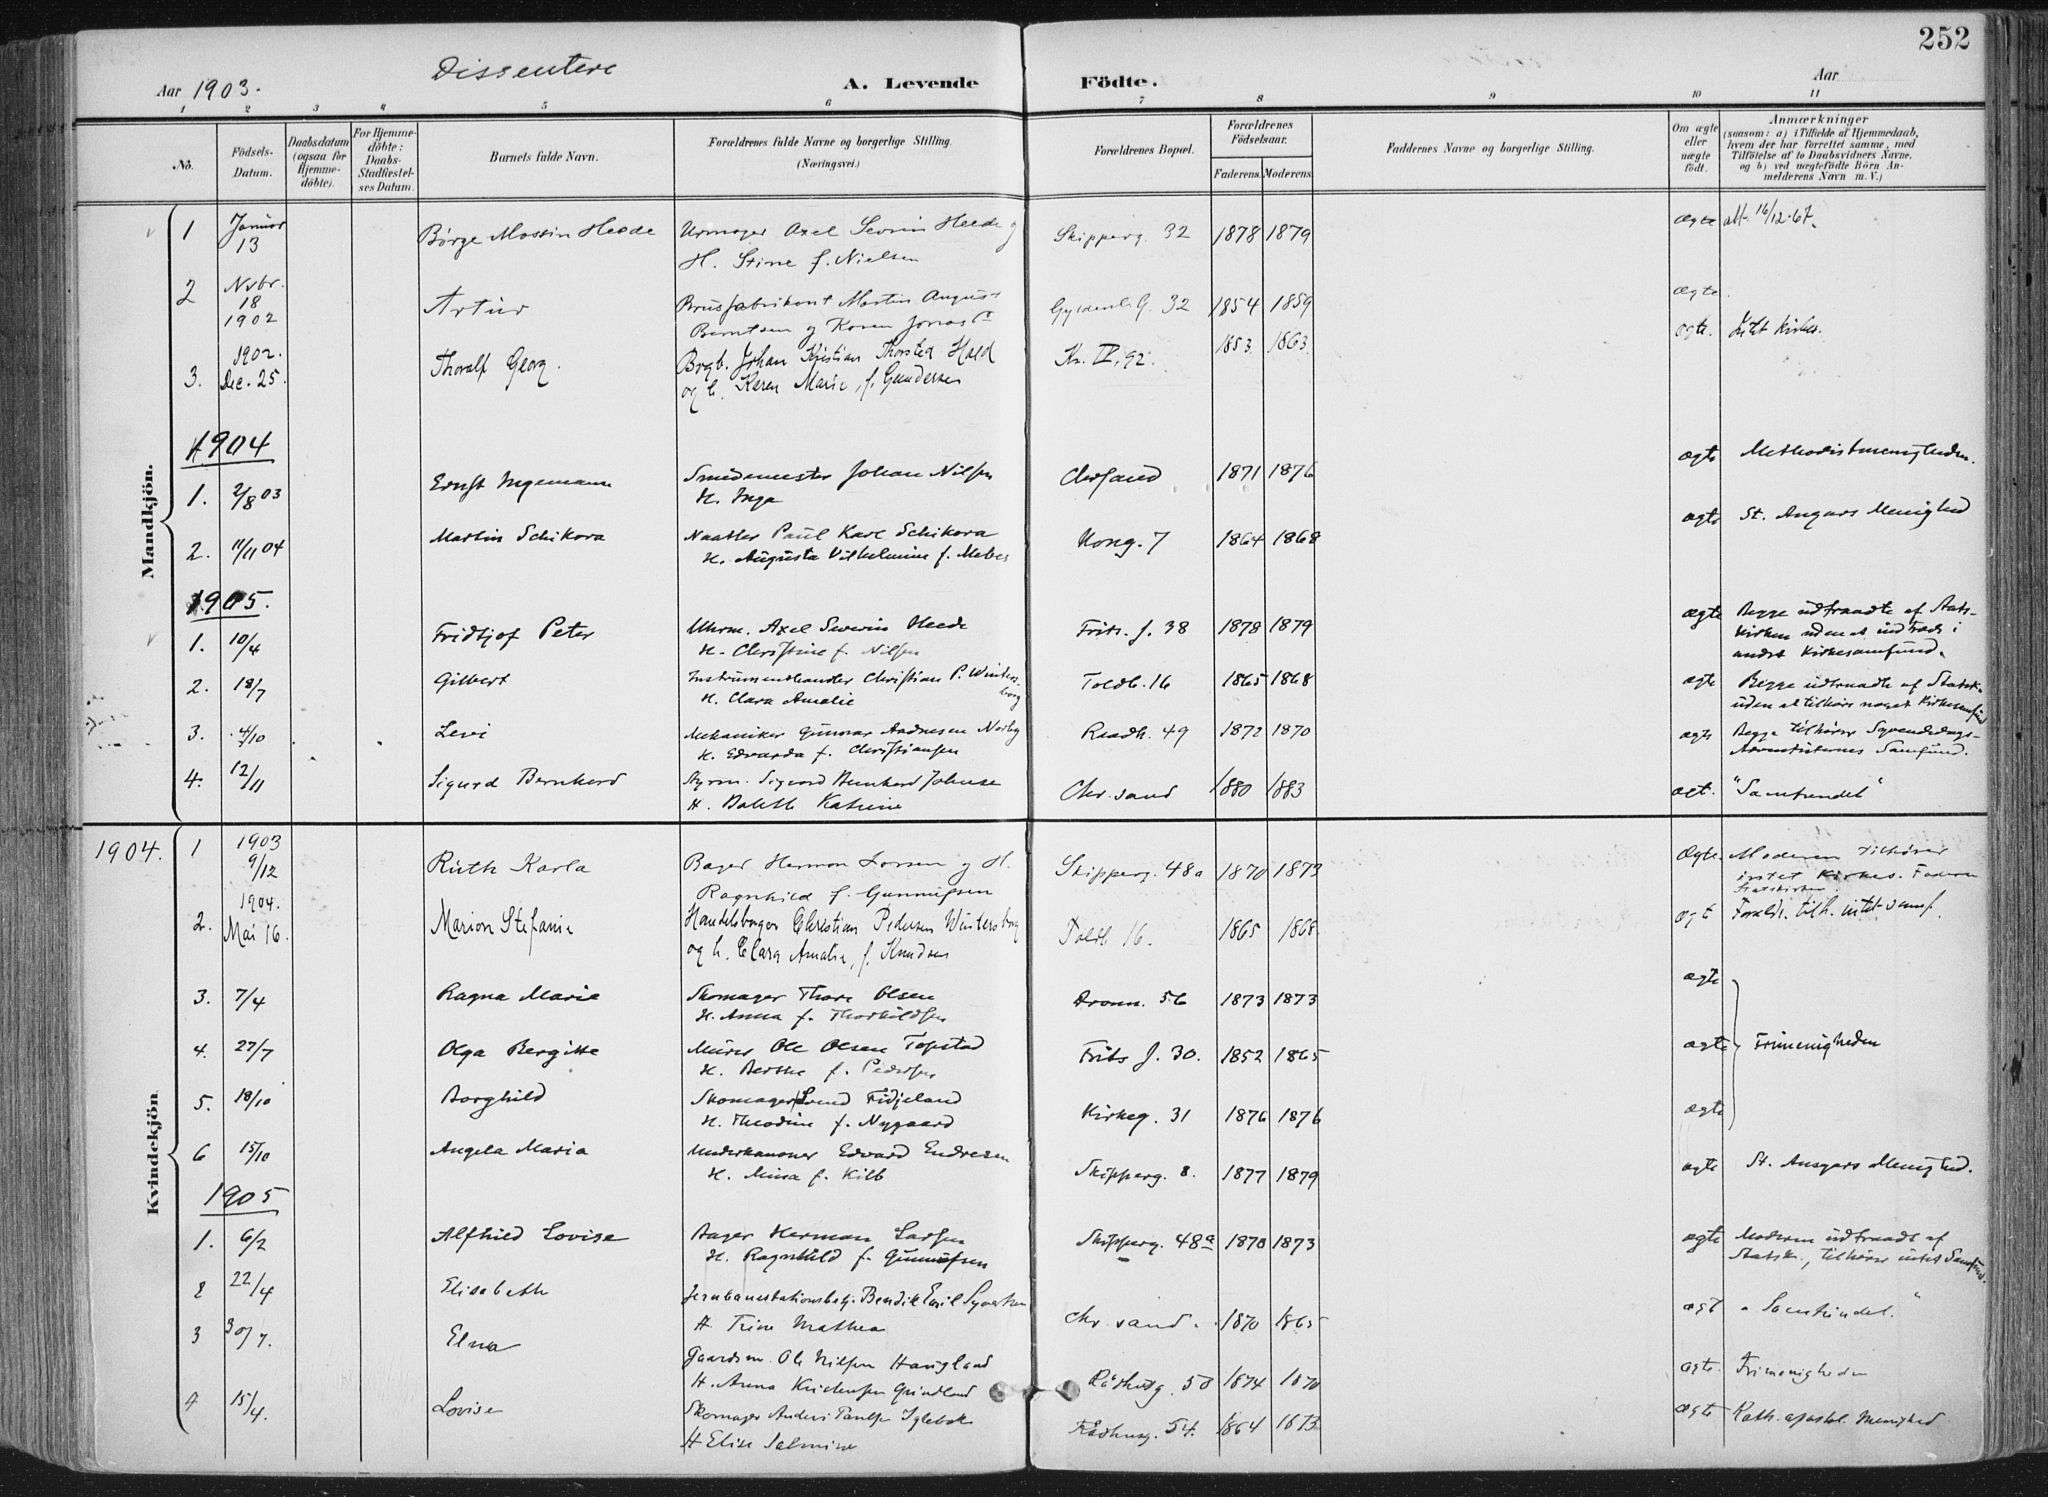 252
Dissentere
Aar 1903.
A. Levende Födte.
Aar
1 2 3 4 5 6 7 8 9 10 11
No.
Födsels-Datum.
Daabsdatum (ogsaa for Hjemme-döbte).
For Hjemme-döbte: Daabs-Stadfæstel-ses Datum.
Barnets fulde Navn.
Forældrenes fulde Navne og borgerlige Stilling. (Næringsvei.)
Forældrenes Bopæl.
Forældrenes Födselsaar.
Faderens. Moderens.
Faddernes Navne og borgerlige Stilling.
Om ægte eller uægte födt.
Anmærkninger
(saasom: a) i Tilfælde af Hjemmedaab, hvem der har forrettet samme, med Tilföielse af to Daabsvidners Navne, og b) ved uægtefödte Börn Anmelderens Navn m. V.)
Mandkjön.
1 Januar 13 Børge Heede Urmager Axel Heede og Skipperg. 32 1878 1879 ægte att. 16/12-67.
H. Stine f. Nielsen
2 Nvbr. 18 1902 Artur Brusfabrikant Martin August Gyldenl. G. 32 1854 1859 ægte.
Berntsen og Karen
3. 1902. Dec. 25. Thoralf Georg. Brgb. Johan Kristian Thorsted Hald Kr. IV, 92. 1853 1863 ægte. Kirkes.
og h. Karen Marie, f. Gundersen
1904
1. 2/8 03 Ernst Ingemann Smedemester Johan Nilsen Chrsand 1871 1876 ægte Methodistmenigheden.
H. Inga
2. 11/11 04 Martin Schikora Paul Karl Schikora Kong. 7 1864 1868 ægte St. Ansgars Menighed
H. Augusta Vilhelmine f.
1905.
1. 10/4 Fridtjof Peter Uhrm. Axel Severin Heede Frits. J. 38 1878 1879 ægte Begge udtraadte af Stats-
H. Christine f. Nilsen kirken uden at indtræde i
andet Kirkesamfund.
2. 18/7 Gilbert Instrumenthandler Christian P. Winters- Toldb. 16 1865 1868 ægte Begge udtraadte af Statsk.
borg
H. Clara Amalie uden at tilhøre noget Kirkesamfund
3. 4/10 Levi Mekaniker Gunnar Andresen Norby Raadh. 49 1872 1870 ægte Begge tilhører Syvendedags-
H. Edvarda f. Christiansen Adventisternes Samfund.
4. 12/11 Sigurd Bernhard Styrm. Sigurd Bernhard Johnse Chr. sand 1880 1883 ægt. "Samfundet"
H. Katrine
Kvindekjön
1904. 1 1903 9/12 Ruth Karla Bager Herman Larsen og H. Skipperg. 48a 1870 1873 Ægte Moderen tilhører
Ragnhild f. Gunnufsen intet Kirkes. Faderen
Statskirken.
2. 1904. Mai 16. Marion Stefanie Handelsborger Christian Pedersen Wintersborg Toldb 16. 1865 1868 ægt Foreldr. tilh. intet samf.
og h. Clara Amalie, f. Knudsen
3. 7/4 Ragna Marie Skomager Thore Olsen Dronn. 56 1873 1873 ægte
H. Anna f. Thorkildsen
4. 27/7 Olga Bergitte Murer Ole Olsen Topstad Frits J. 30. 1852 1865 ægte Frimenigheden
H. Berthe f. Pedersen
5. 18/10 Borghild Skomager Fidjeland Kirkeg. 31 1876 1876 ægte
H. Theodine f. Nygaard
6 15/10 Angela Maria Underkanoner Edvard Endresen Skipperg. 8. 1877 1879 ægte St. Ansgars Menighed.
H. Mina f. Kilb
1905
1. 6/2 Alfhild Lovise Bager Herman Larsen Skipperg. 48a 1870 1873 ægte Moderen udtraadt af
H. Ragnhild f. Gunnufsen Statsk., tilhører intet Samfund.
2 22/4 Elisabeth Jernbanestationsbetj. Bendik Emil Chr. sand. 1870 1865 ægt "Samfundet"
H. Trine Mathea
3 30/7. Elna Gaardsm. Ole Nilsen Haugland Rådhusg. 50 1874 1870 ægte. Frimenigheden
H. Anna Kristensen Grindland
4 15/4. Lovise Skomager Anders Iglebæk Rådhusg. 54. 1864 1873 ægte Kath. apostol. Menighed
H Elise Salmine